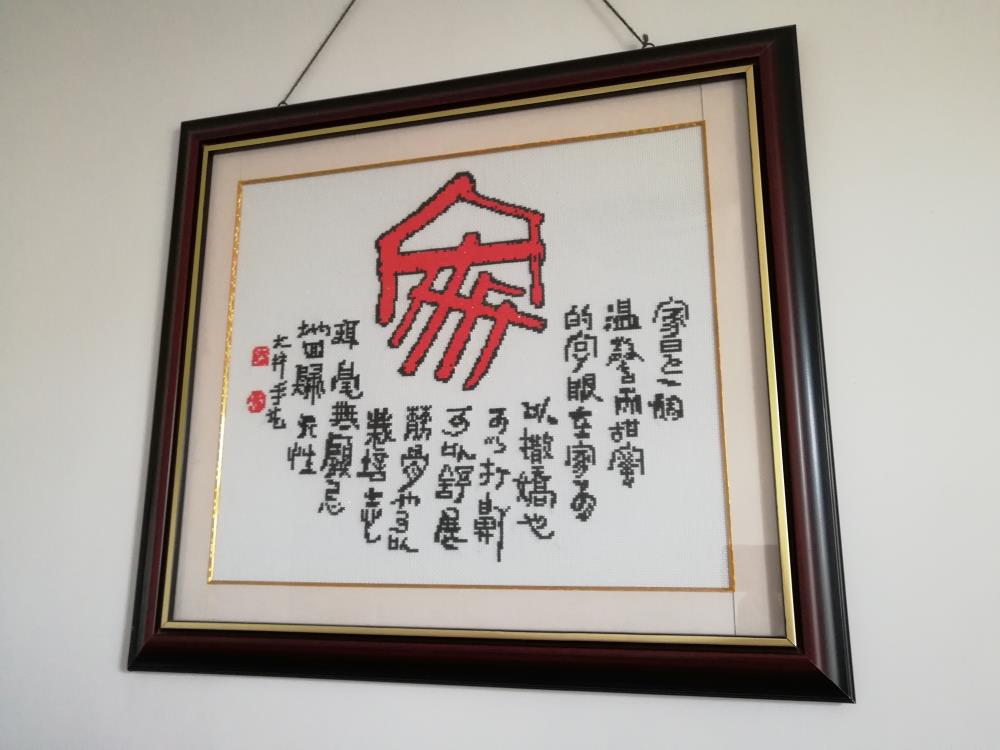 家
家是一個
温馨而甜蜜
的字眼在家可
以撒嬌也
可以打鼾
可以舒展
筋骨也可以
毫無顧忌
地回歸天性